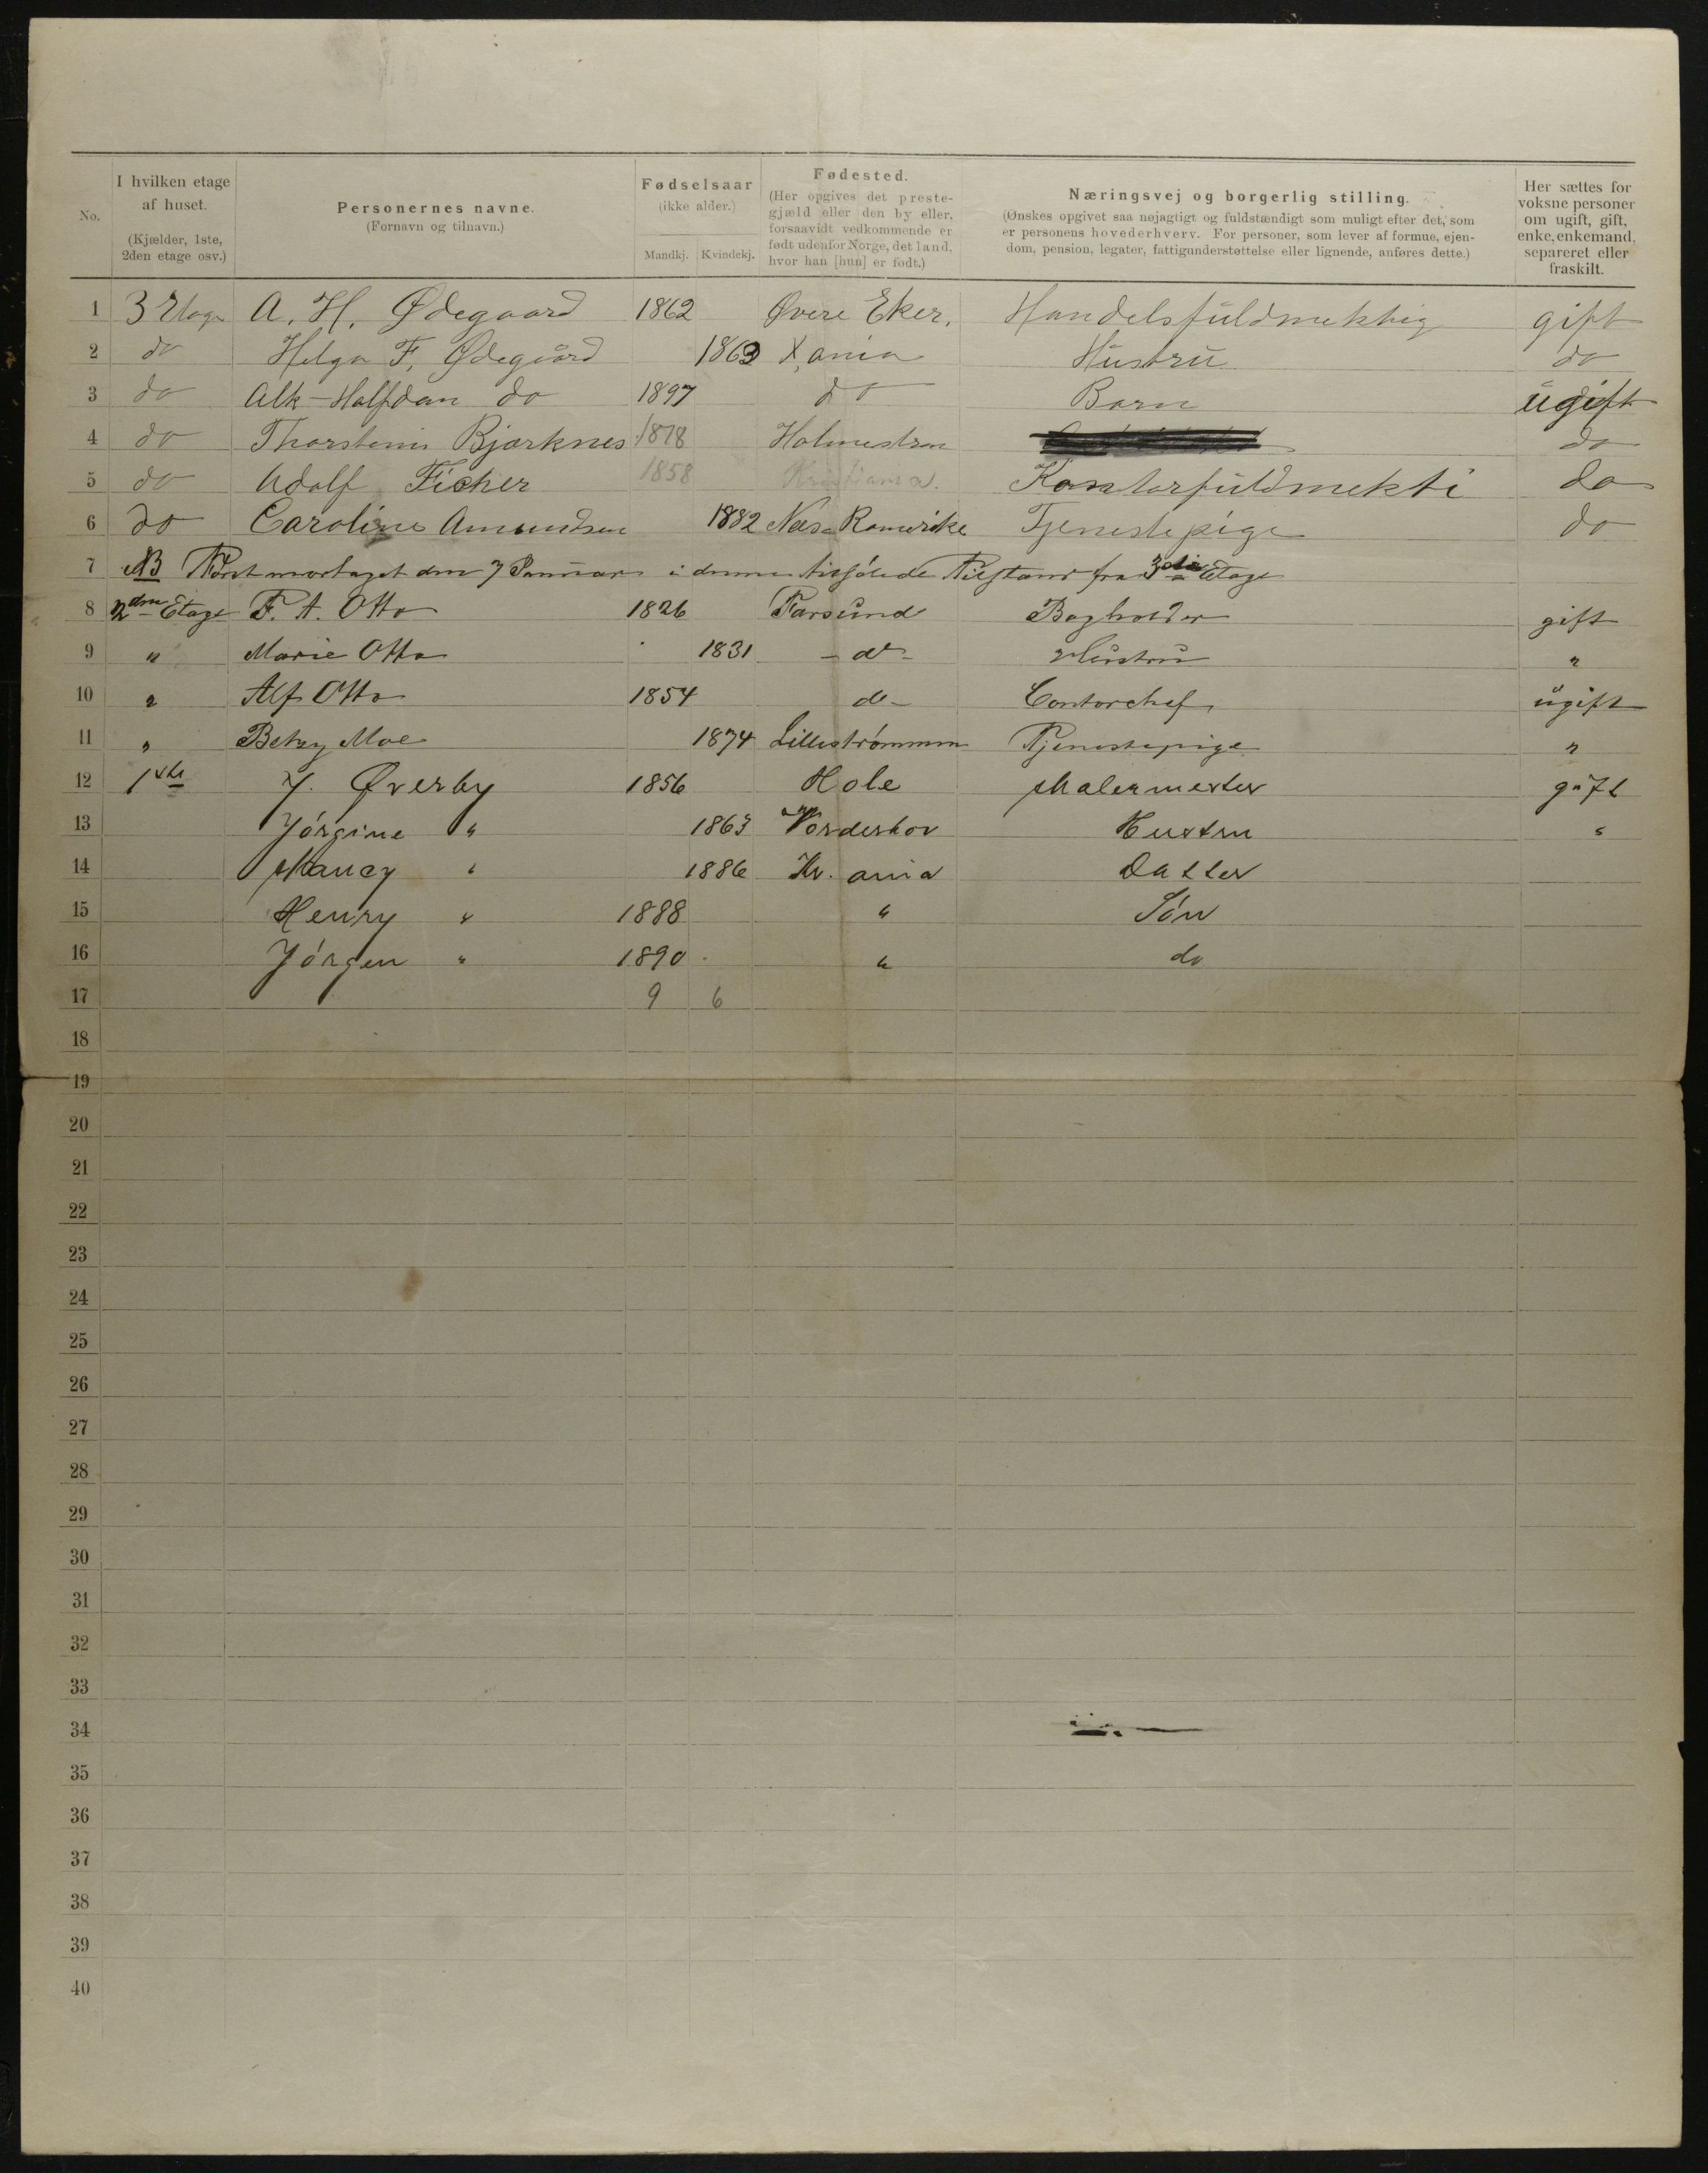 No. I hvilken etage af huset. (Kjælder, 1ste, 2den etage osv.) Personernes navne. (Fornavn og tilnavn.) Fødselsaar (ikke alder.) Mandkj. Kvindekj. Fødested. (Her opgives det prestegjæld eller den by eller, forsaavidt vedkommende er født udenfor Norge, det land, hvor han [hun] er født.) Næringsvej og borgerlig stilling. (Ønskes opgivet saa nøjagtigt og fuldstændigt som muligt efter det, som er personens hovederhverv. For personer, som lever af formue, ejendom, pension, legater, fattigunderstøttelse eller lignende, anføres dette.) Her sættes for voksne personer om ugift, gift, enke, enkemand, separeret eller fraskilt.
1 3 Etage A. H. Ødegaard 1862 Øvere Eker. Handelsfuldmektig gift
2 do Helga F. Ødegård 1863 Xania Hustru do
3 do Alk-Halfdan do 1897 do Barn ugift
4 do Bjørknes 1878 Holmestran do
5 do Adolf Ficher 1858 Kristiania. Kontorfuldmekti do
6 do Caroline Amundsen 1882 Næs Romerike Tjenestepige do
7 NB den 7 Januar i denne Tilstand fra 3die Etage
8 2den Etage F. A. Otto 1826 Farsund Bogholder gift
9 " Marie Otto 1831 - do - Hustru "
10 " Alf Otto 1854 do - Contorchef ugift
11 " Betzy Moe 1874 Lillestrømmen Tjenestepige "
12 1ste J. Øverby 1856 Hole Malermester gift
13 Jórgine " 1863 Norderhov Hustru "
14 Nancy " 1886 Kr. ania Datter
15 Henry " 1888 " Són
16 Jórgen " 1890 " do
17 9 6
18
19
20
21
22
23
24
25
26
27
28
29
30
31
32
33
34
35
36
37
38
39
40